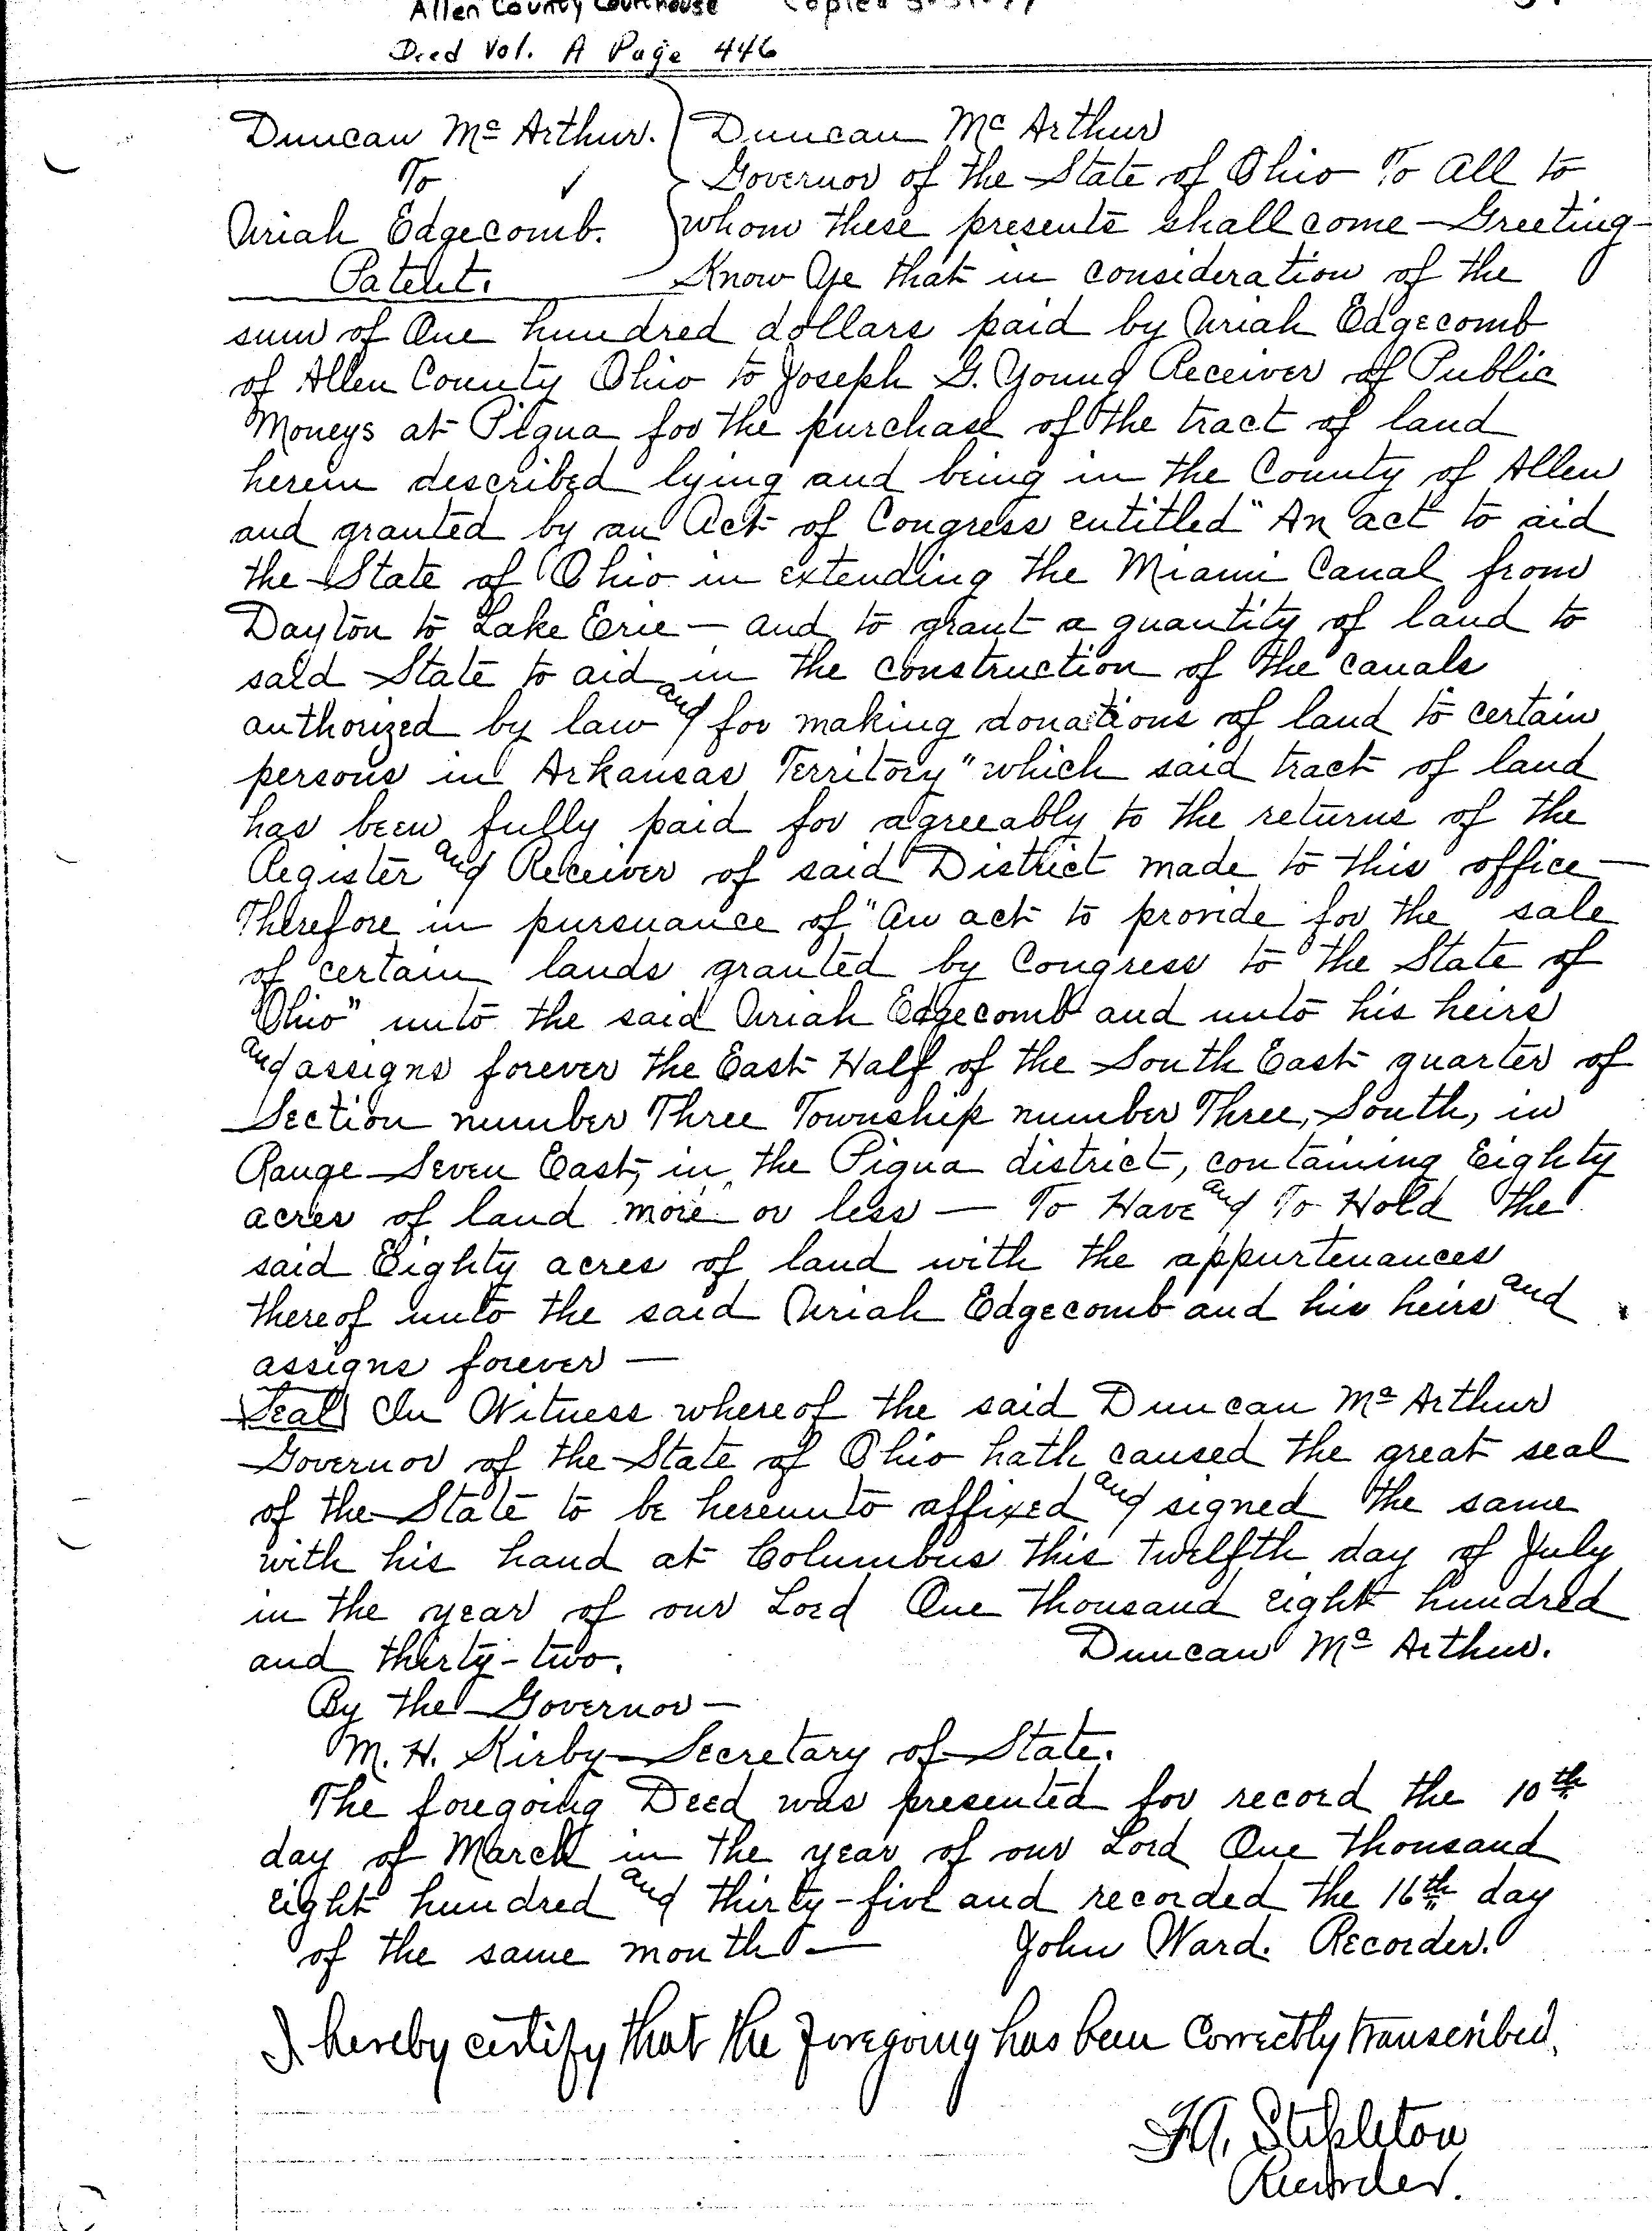 Allen County Courthouse
Deed Vol. A Page 446
Duncan Mc Arthur.
To ✓
Uriah Edgecomb.
Patent.
Duncan Mc Arthur
Governor of the State of Ohio To All to
whom these presents shall come — Greeting —
Know Ye that in consideration of the
sum of One hundred dollars paid by Uriah Edgecomb
of Allen County Ohio to Joseph G. Young Receiver of Public
Moneys at Piqua for the purchase of the tract of land
herein described lying and being in the County of Allen
and granted by an Act of Congress entitled "An act to aid
the State of Ohio in extending the Miami Canal from
Dayton to Lake Erie — and to grant a quantity of land to
said State to aid in the construction of the canals
authorized by law and for making donations of land to certain
persons in Arkansas Territory" which said tract of land
has been fully paid for agreeably to the returns of the
Register and Receiver of said District made to this office —
Therefore in pursuance of "An act to provide for the sale
of certain lands granted by Congress to the State of
Ohio" unto the said Uriah Edgecomb and unto his heirs
and assigns forever the East Half of the South East quarter of
Section number Three Township number Three, South, in
Range Seven East, in the Piqua district, containing Eighty
acres of land more or less — To Have and To Hold the
said Eighty acres of land with the appurtenances
thereof unto the said Uriah Edgecomb and his heirs and
assigns forever —
Seal In Witness whereof the said Duncan Mc Arthur
Governor of the State of Ohio hath caused the great seal
of the State to be hereunto affixed and signed the same
with his hand at Columbus this twelfth day of July
in the year of our Lord One thousand eight hundred
and thirty-two. Duncan Mc Arthur.
By the Governor —
M. H. Kirby — Secretary of State.
The foregoing Deed was presented for record the 10th
day of March in the year of our Lord One thousand
eight hundred and thirty-five and recorded the 16th day
of the same month — John Ward. Recorder.
I hereby certify that the Foregoing has been Correctly transcribed.
Stepleton
Recorder.